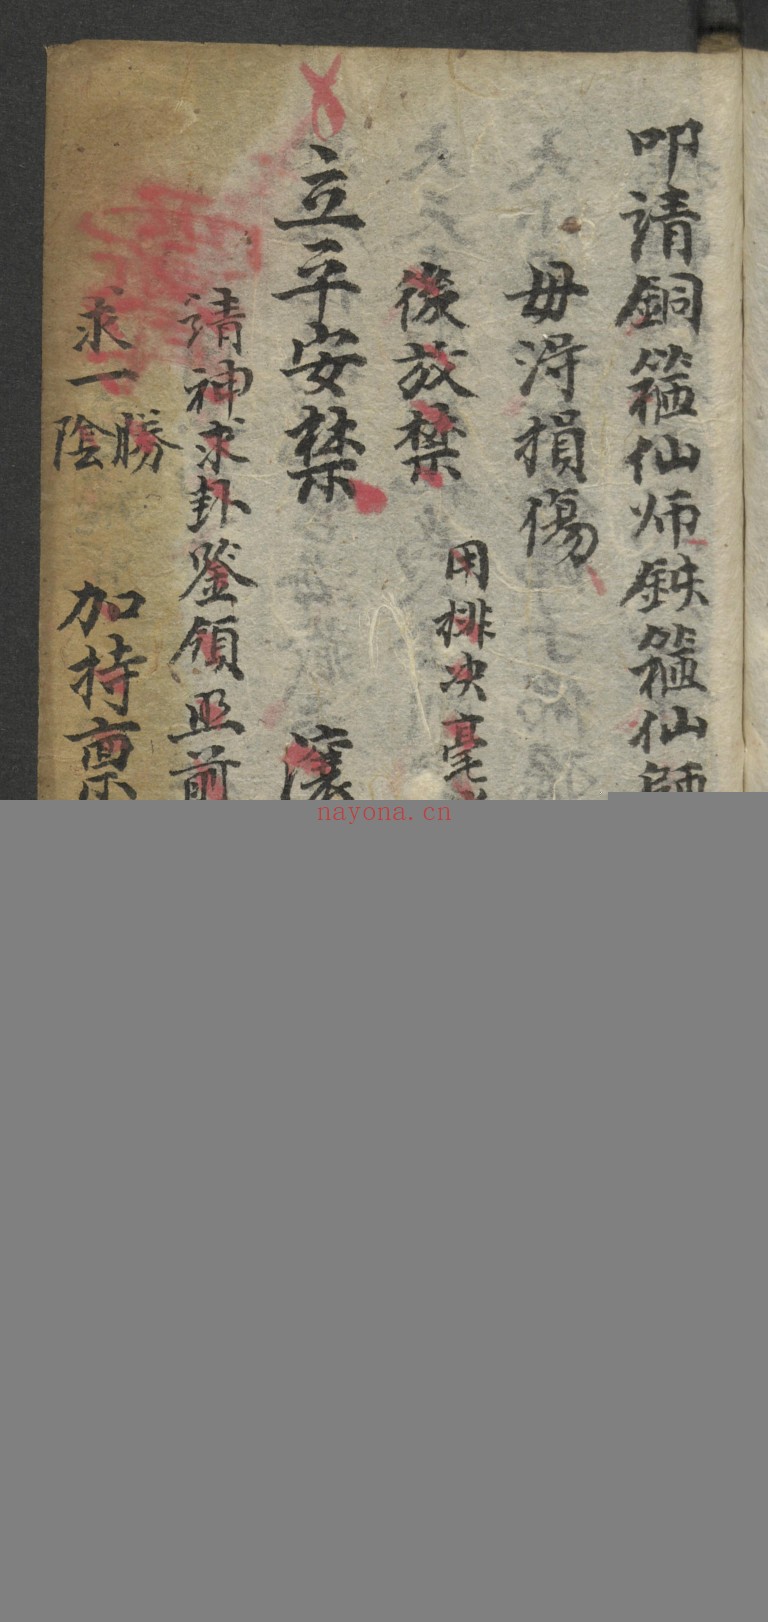 叩請銅箍仙师鉄箍仙師
毋淂損傷
後放禁
用排决毫
立平安禁
請神求卦鉴領照前
求一勝陰
加持禀
nayona.cn